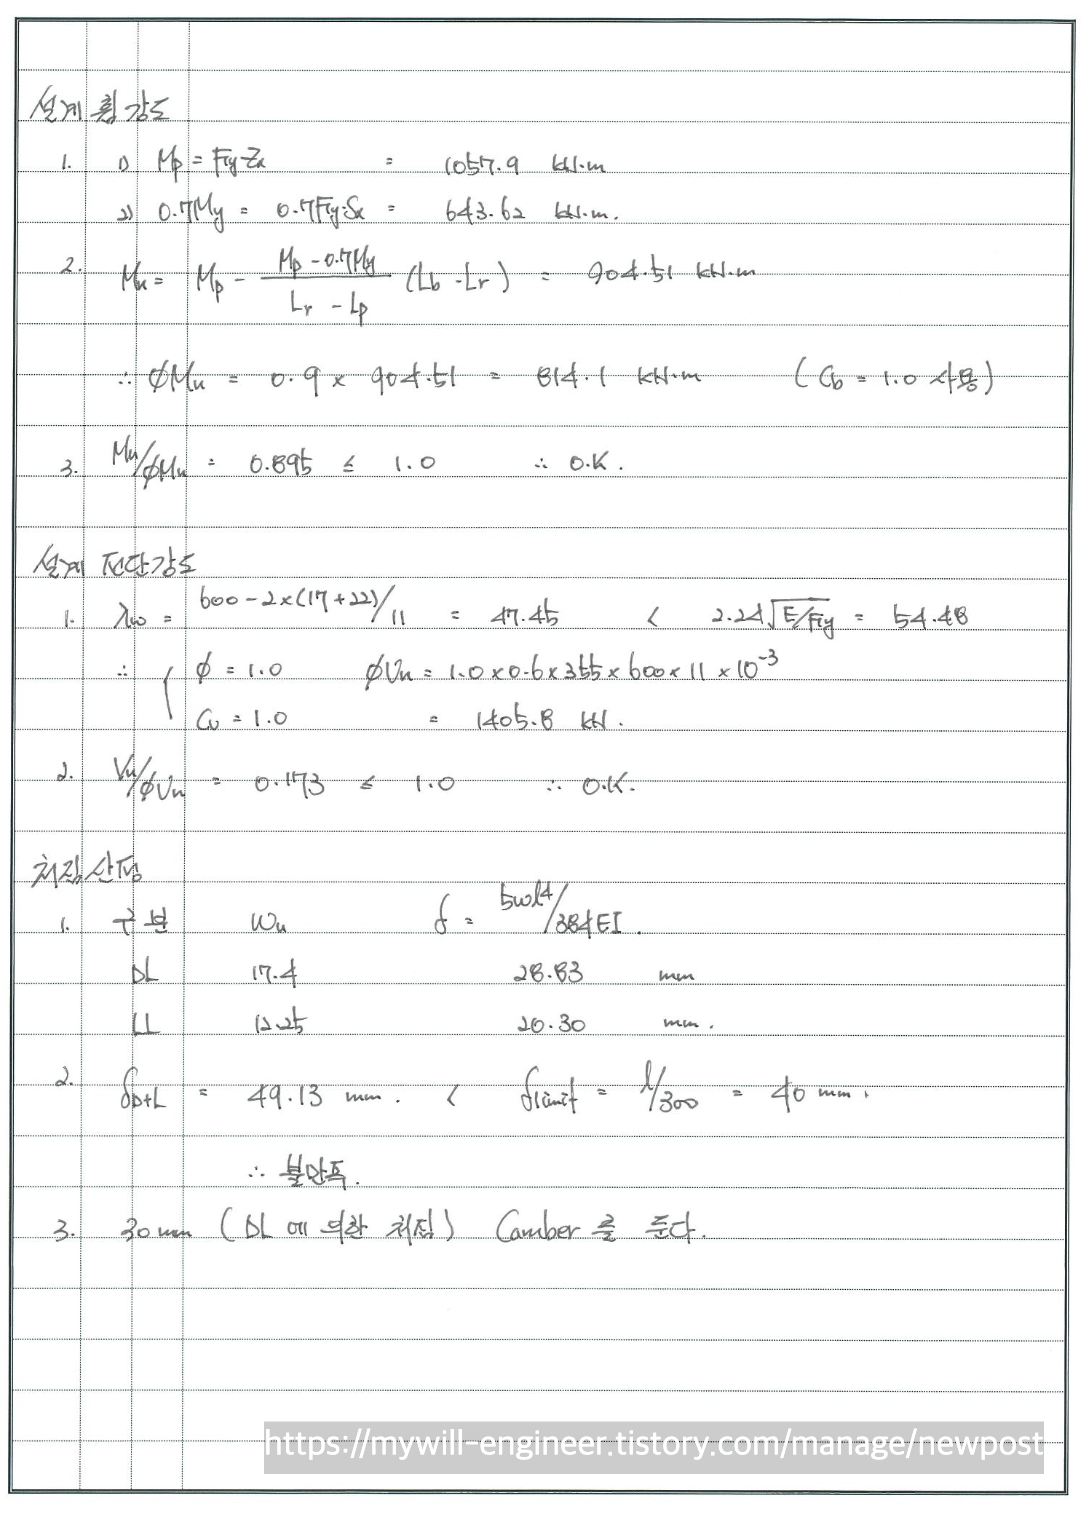 설계 휨강도
1. 1) Mp = FyZx = 1057.9 kN·m
2) 0.7My = 0.7FySx = 643.62 kN·m.
2. Mn = Mp - (Mp - 0.7My)/(Lr - Lp) (Lb - Lr) = 904.51 kN·m
∴ ϕMn = 0.9 × 904.51 = 814.1 kN·m (Cb = 1.0 사용)
3. Mu/ϕMn = 0.895 ≤ 1.0 ∴ O.K.
설계 전단강도
1. λw = 600-2×(17+22)/11 = 47.45 < 2.24√E/Fy = 54.48
∴ { ϕ = 1.0 ϕVn = 1.0×0.6×355×600×11×10⁻³
Cv = 1.0 = 1405.8 kN.
2. Vu/ϕVn = 0.173 ≤ 1.0 ∴ O.K.
처짐산정
1. 구분 Wu δ = 5wl⁴/384EI.
DL 17.4 28.83 mm
LL 12.25 20.30 mm.
2. δD+L = 49.13 mm. < δlimit = l/300 = 40 mm.
∴ 불만족.
3. 30mm (DL에 의한 처짐) Camber를 둔다.
https://mywill-engineer.tistory.com/manage/newpost